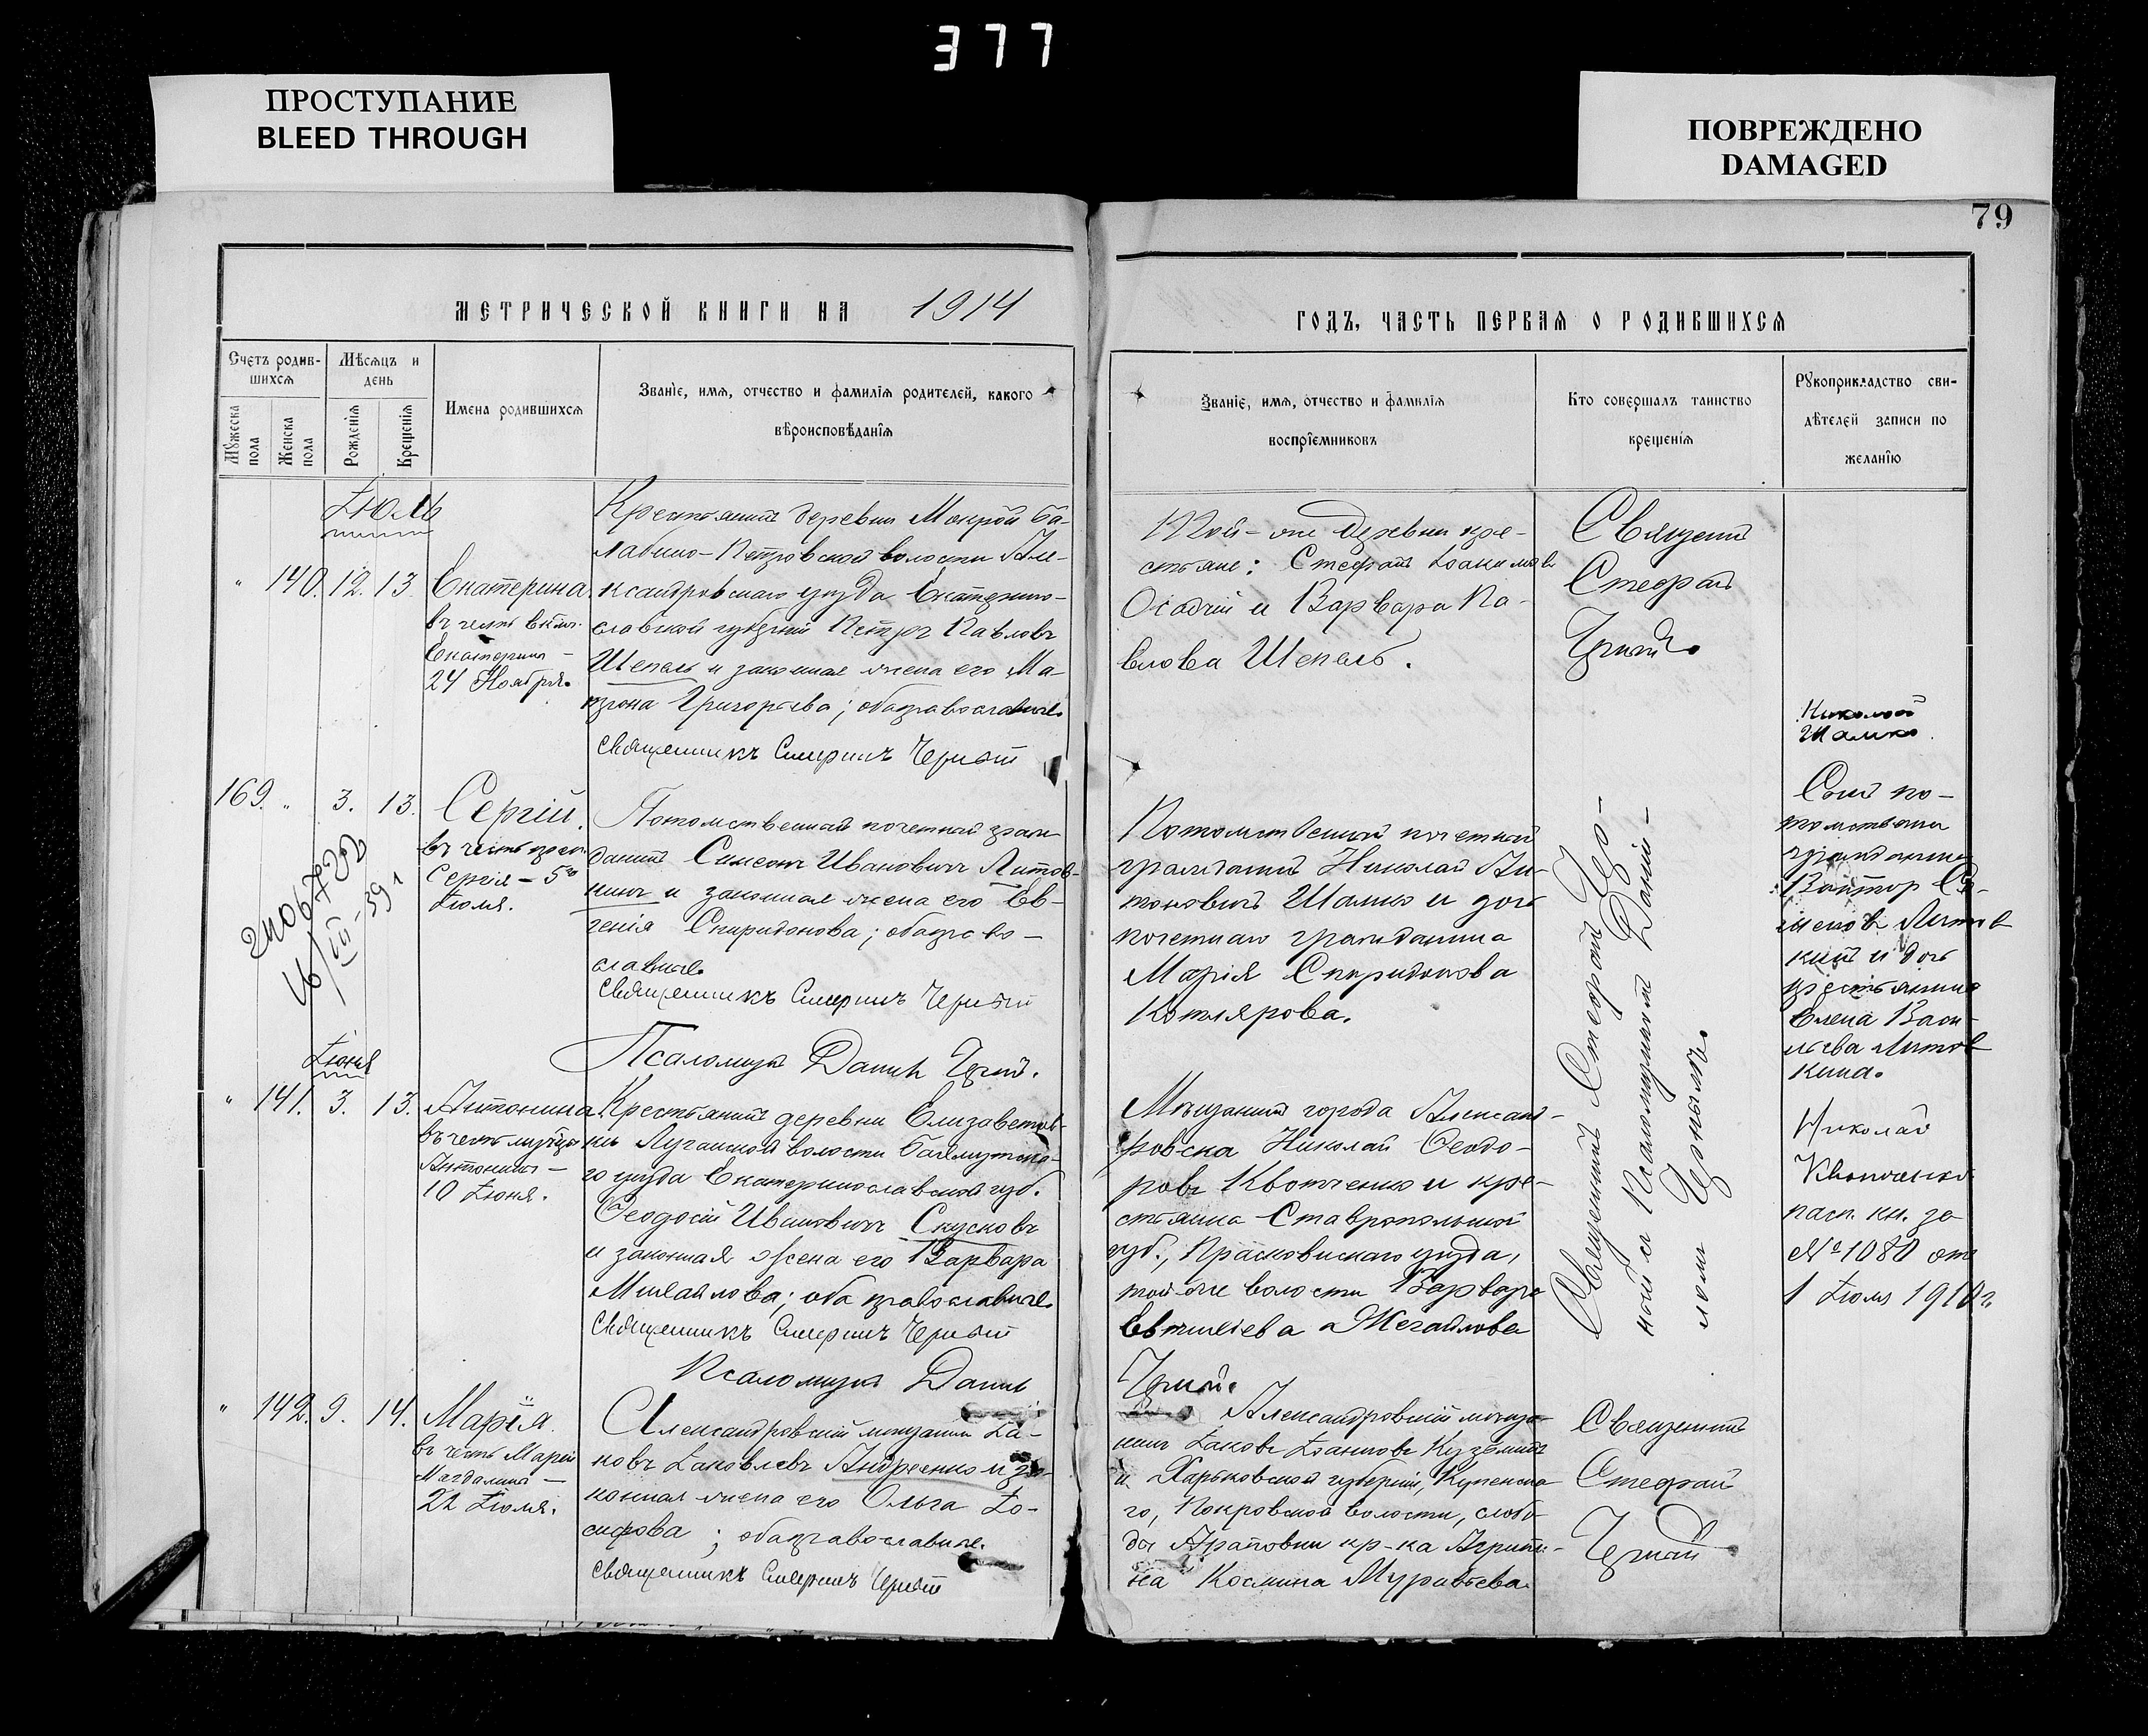 377
ПРОСТУПАНИЕ
BLEED THROUGH
ПОВРЕЖДЕНО
DAMAGED
79
МЕТРИЧЕСКОЙ КНИГИ НА 1914
ГОДЪ, ЧАСТЬ ПЕРВАЯ О РОДИВШИХСЯ
Счетъ родив-
шихся
Мѣсяцъ и
день
Мужеска
пола
Женска
пола
Рожденія
Крещенія
Имена родившихся
Званіе, имя, отчество и фамилія родителей, какого
вѣроисповѣданія
Званіе, имя, отчество и фамилія
воспріемниковъ
Кто совершалъ таинство
крещенія
Рукоприкладство сви-
дѣтелей записи по
желанію
Іюль
" 140. 12. 13. Екатерина
въ честь
Екатерины -
24 Ноября.
Крестьянинъ деревни Мокрой Ба-
лабино-Петровской волости Але-
ксандровскаго уѣзда Екатерино-
славской губерніи Петръ Павловъ
Шепель и законная жена его Ма-
трона Григорьева; оба православные.
Священникъ Стефанъ Черный
Той-же деревни кре-
стьяне: Стефанъ Іоакимовъ
Осадчій и Варвара Па-
влова Шепель.
Священникъ
Стефанъ
Черный.
169. " 3. 13. Сергій.
въ честь преп.
Сергія - 5го
Іюля.
2 ПО 67202
16/III-39
Потомственный почетный граж
данинъ Симеонъ Ивановичъ Литов-
кинъ и законная жена его Ев-
генія Спиридонова; оба право-
славные.
Священникъ Стефанъ Черный
Псаломщикъ Даніилъ Черный.
Потомственный почетный
гражданинъ Николай Ан-
тоновичъ Шамко и дочь
почетнаго гражданина
Марія Спиридонова
Котлярова.
Священникъ Стефанъ Чер-
ный и Псаломщикомъ Даніи-
ломъ Чернымъ.
Николай
Шамко.
Сынъ по-
томственн
гражданина
Викторъ Си-
меоновъ Литов
кинъ и дочь
крестьянина
Елена Васи-
льева Литов
кина.
Іюня
" 141. 3. 13. Антонина.
въ честь муч-цы
Антонины -
10 Іюня.
Крестьянинъ деревни Елизаветов-
ки Луганской волости Бахмутска-
го уѣзда Екатеринославской губ.
Ѳеодосій Ивановичъ Скусковъ
и законная жена его Варвара
Михайлова; оба православные.
Священникъ Стефанъ Черный
Псаломщикъ Даніилъ
Черный.
Мѣщанинъ города Александ-
ровска Николай Ѳеодо-
ровъ Квотченко и кре-
стьянка Ставропольской
губ., Прасковейскаго уѣзда,
той-же волости Варвара
Евтихіева
Николай
Квотченко
пасп. кн. за
№ 1080 отъ
1 Іюля 1910 г.
" 142. 9. 14. Марія.
въ честь Маріи
Магдалины -
22 Іюля.
Александровскій мѣщанинъ Іа-
ковъ Іаковлевъ Андреенко и за-
конная жена его Ольга Іо-
сифова; оба православные.
Священникъ Стефанъ Черный
Александровскій мѣща-
нинъ Іаковъ Іоанновъ Куземинъ
и Харьковской губерніи, Купянска-
го, Покровской волости, слобо-
ды Араповки кр-ка Агрипи-
на Космина Муравьева.
Священникъ
Стефанъ
Черный